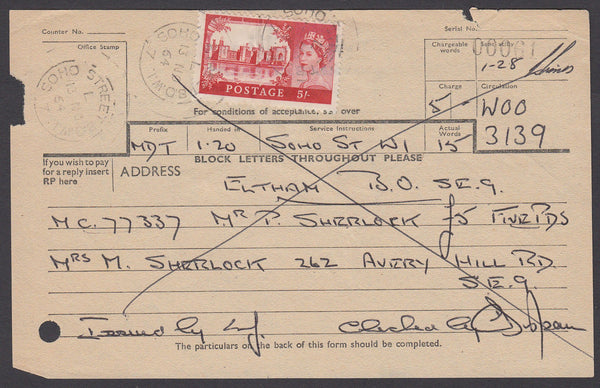 Counter No.
Serial No.
Office Stamp
SOHO STREET
SOHO
13 N
64
POSTAGE 5/-
Chargeable words
Sent at/by
1-28
For conditions of acceptance, over
Charge
Circulation
5
WOO
3139
Prefix
Handed in
Service Instructions
Actual Words
MDT 1·20 SOHO ST W1 15
If you wish to pay for a reply insert RP here
BLOCK LETTERS THROUGHOUT PLEASE
ADDRESS
ELTHAM B.O. SE.9.
M.C. 77337 MR P. SHERLOCK £5 FIVE PDS
MRS M. SHERLOCK 262 AVERY HILL RD
S.E.9.
Issued by
Checked by
The particulars on the back of this form should be completed.